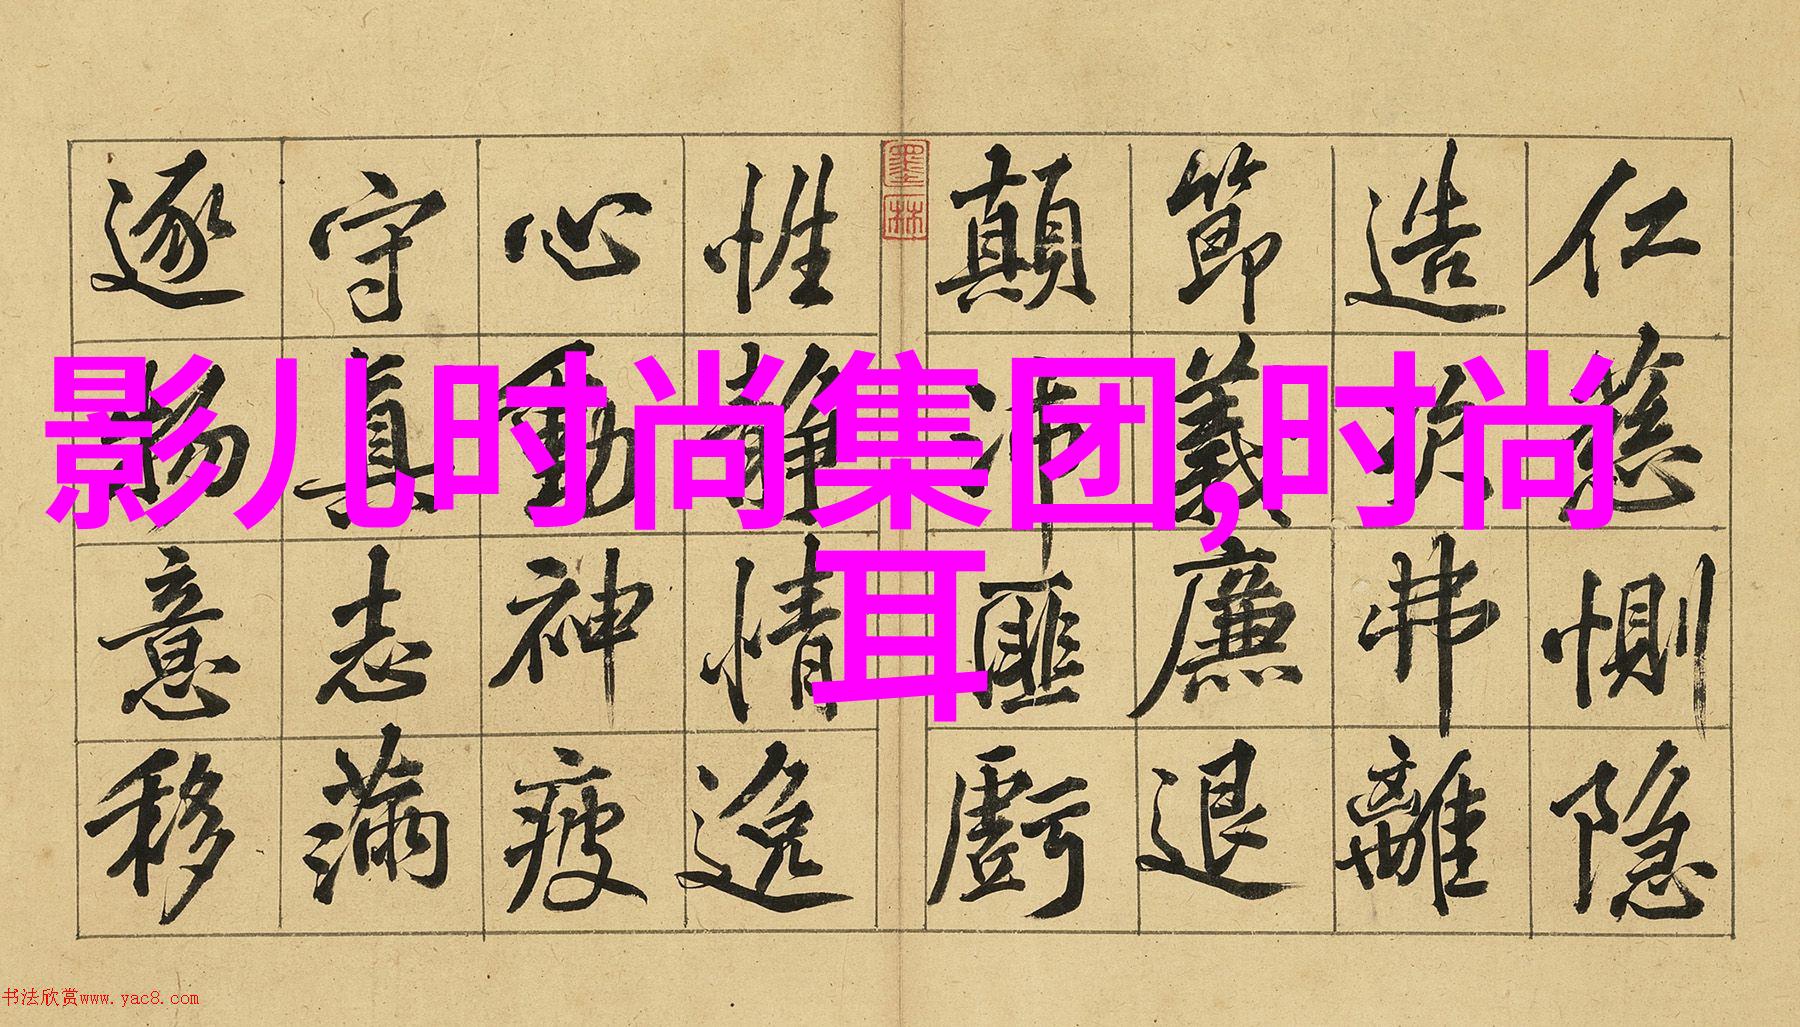 仁慈惻隐
造次弗離
節義廉退
顛沛匪虧
性静情逸
心動神疲
守真志滿
逐物意移
墨林
影儿时尚集团,时尚
耳
书法欣赏www.yac8.com